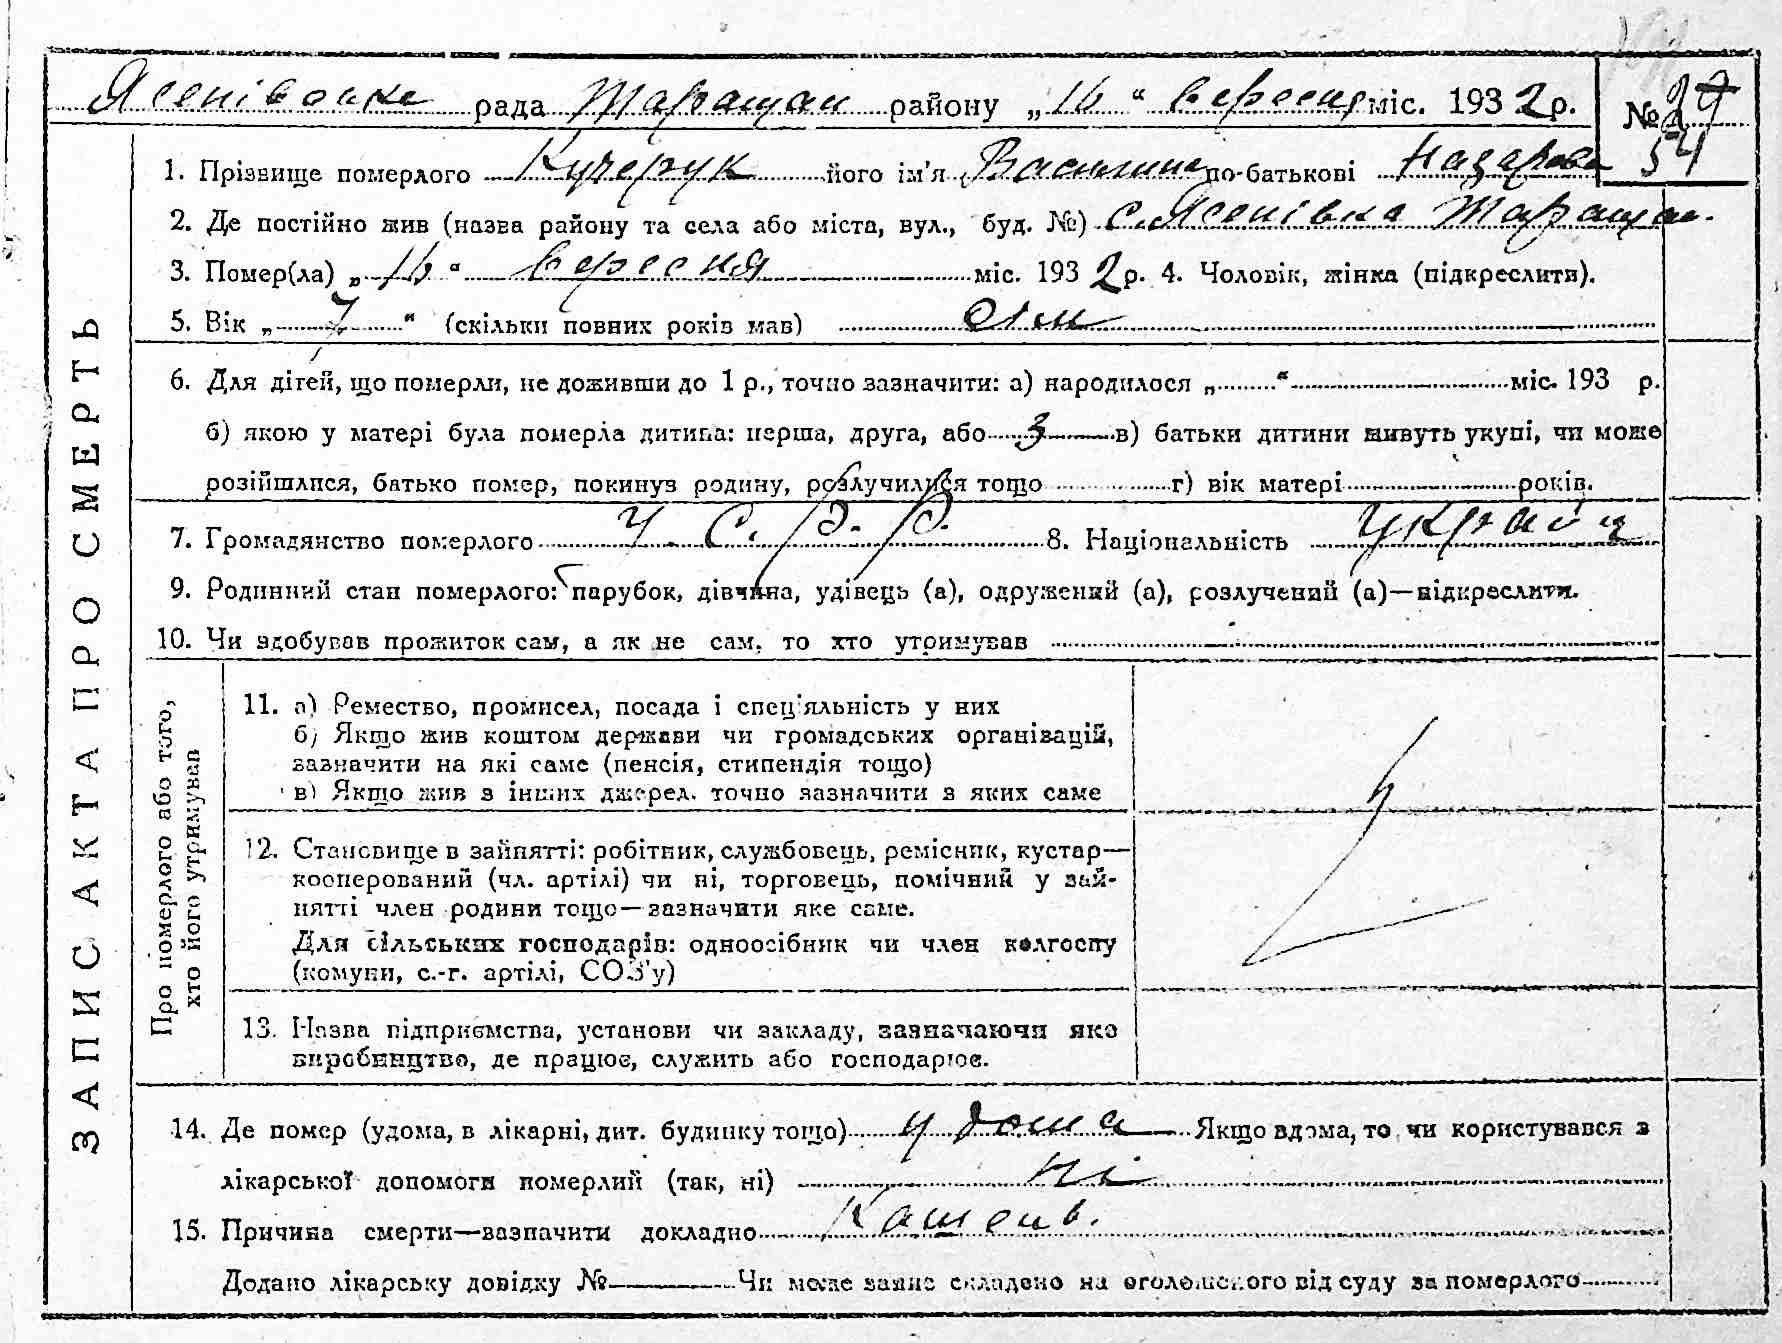 Ясенівська рада Таращан району „16“ вересня міс. 1932 р.
№ 27
54
1. Прізвище померлого Кучерук його ім'я Василина по-батькові Назарова
2. Де постійно жив (назва району та села або міста, вул., буд. №) с. Ясенівка Таращан.
3. Помер(ла) „16“ вересня міс. 1932 р. 4. Чоловік, жінка (підкреслити).
5. Вік „7“ (скільки повних років мав) сім
6. Для дітей, що померли, не доживши до 1 р., точно зазначити: а) народилося „ “ міс. 193 р.
б) якою у матері була померла дитина: перша, друга, або 3 в) батьки дитини живуть укупі, чи може
розійшлися, батько помер, покинув родину, розлучилися тощо г) вік матері років.
7. Громадянство померлого У. С. Р. Р. 8. Національність україн
9. Родинний стан померлого: парубок, дівчина, удівець (а), одружений (а), розлучений (а)—підкреслити.
10. Чи здобував прожиток сам, а як не сам, то хто утримував
ЗАПИС АКТА ПРО СМЕРТЬ
Про померлого або того,
хто його утримував
11. а) Ремество, промисел, посада і спеціяльність у них
б) Якщо жив коштом держави чи громадських організацій,
зазначити на які саме (пенсія, стипендія тощо)
в) Якщо жив з інших джерел, точно зазначити з яких саме
12. Становище в зайнятті: робітник, службовець, ремісник, кустар—
кооперований (чл. артілі) чи ні, торговець, помічний у зай-
нятті член родини тощо—зазначити яке саме.
Для сільських господарів: одноосібник чи член колгоспу
(комуни, с.-г. артілі, СОЗ'у)
13. Назва підприємства, установи чи закладу, зазначаючи яко
виробництво, де працює, служить або господарює.
14. Де помер (удома, в лікарні, дит. будинку тощо) у дома Якщо вдома, то чи користувався з
лікарської допомоги померлий (так, ні) ні
15. Причина смерти—зазначити докладно Кашень.
Додано лікарську довідку № Чи може запис складено на оголошеного від суду за померлого